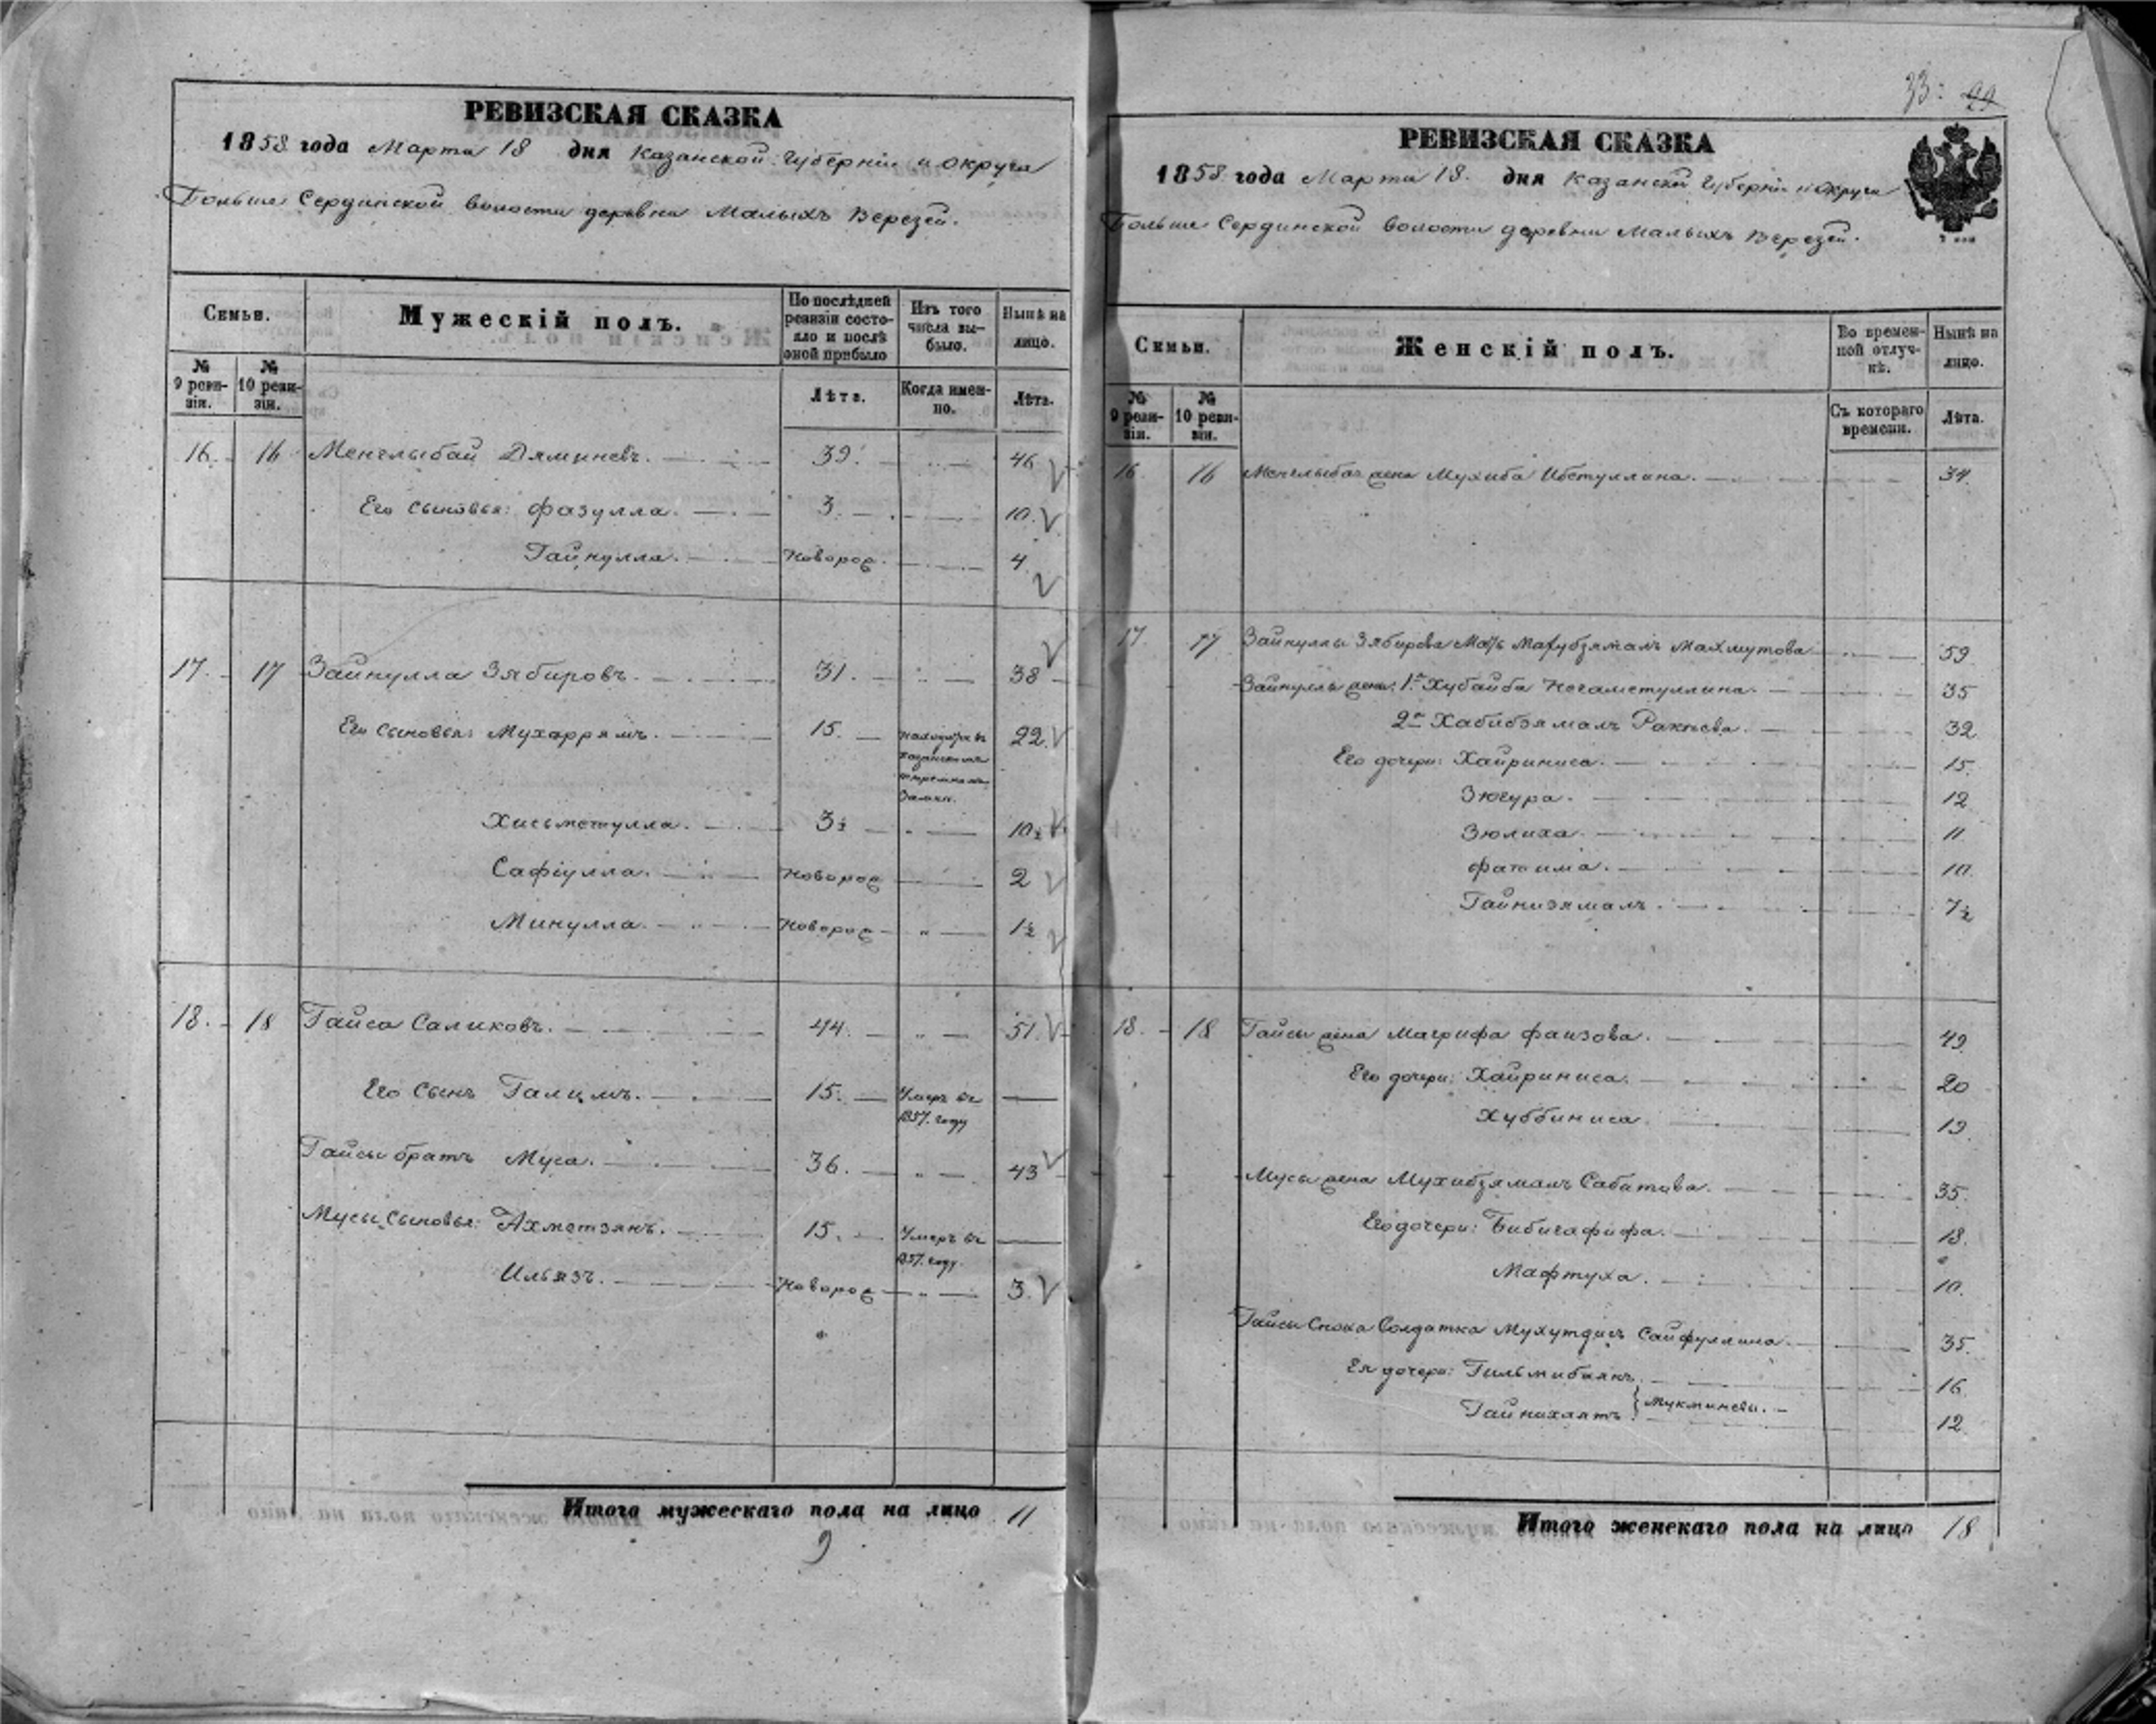 РЕВИЗСКАЯ СКАЗКА
1858 года Марта 18 дня Казанской Губерніи и округа
Больше Сердинской волости деревни Малыхъ Верезей.
Семьи.
Мужескій полъ.
По послѣдней ревизіи состояло и послѣ оной прибыло
Изъ того числа выбыло.
Нынѣ на лицо.
№ 9 ревизіи.
№ 10 ревизіи.
Лѣта.
Когда именно.
Лѣта.
16. 16 Менглыбай Дяминевъ. 39. 46
Его сыновья: Фазулла. 3. 10.
Гайнулла. Новорож. 4
17. 17 Зайнулла Зябировъ. 31. 38
Его сыновья: Мухаррямъ. 15. Находится въ Казанскомъ тюремномъ Замкѣ. 22.
Хисьметулла. 3½ 10½
Сафіулла. Новорож 2
Минулла. Новорож 1½
18. 18 Гайса Салиховъ. 44. 51.
Его сынъ Галимъ. 15. Умеръ въ 1857. году
Гайсы братъ Муса. 36. 43
Мусы Сыновья: Ахметзянъ. 15. Умеръ въ 1857. году.
Ильязъ. Новорож 3.
Итого мужескаго пола на лицо 11
9
33: 29
РЕВИЗСКАЯ СКАЗКА
1858 года Марта 18. дня Казанской Губерніи и округа
Больше Сердинской волости деревни Малыхъ Верезей.
Семьи.
Женскій полъ.
Во временной отлучкѣ.
Нынѣ на лицо.
№ 9 ревизіи.
№ 10 ревизіи.
Съ котораго времени.
Лѣта.
16 16 Менглыбая жена Мухиба Ибетуллина. 34.
17. 17 Зайнуллы Зябирова Мать Махубзямалъ Махмутова 59.
Зайнуллы жены: 1я Хубайба Негаметуллина. 35
2я Хабибзямалъ Ракаева. 32
Его дочери: Хайриниса. 15.
Зюгура. 12
Зюлиха. 11
Фатима. 10.
Гайнизямалъ. 7½
18. 18 Гайсы жена Магрифа Фаизова. 49.
Его дочери: Хайриниса. 20
Хуббиниса. 19.
Мусы жена Мухибзямалъ Сабитова. 35.
Его дочери: Бибигафифа. 18.
Мафтуха. 10.
Гайсы Сноха Солдатка Мухутдисъ Сайфуллина. 35.
Ея дочери: Гильмибаянъ. 16
Гайнихаятъ } Мукминевы. 12
Итого женскаго пола на лицо 18